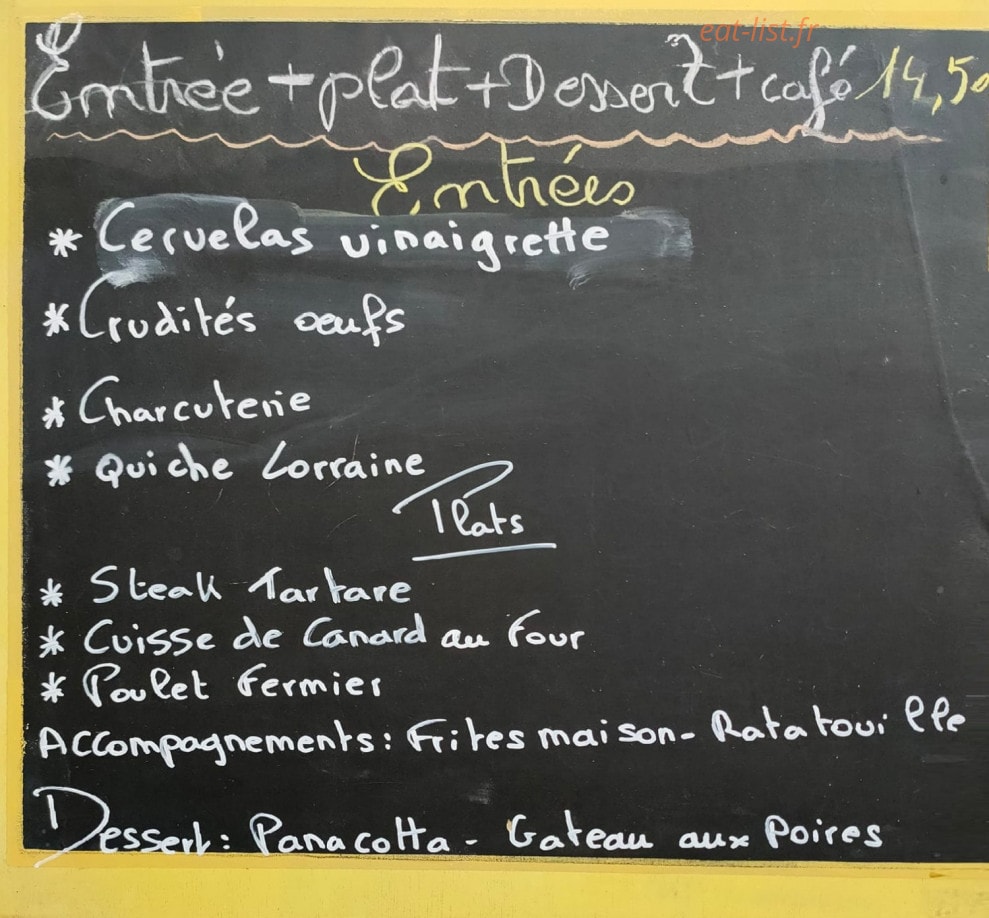 eat-list.fr
Entrée + plat + Dessert + café 14,50
Entrées
* Cervelas vinaigrette
* Crudités oeufs
* Charcuterie
* Quiche Lorraine
Plats
* Steak Tartare
* Cuisse de Canard au Four
* Poulet Fermier
Accompagnements : Frites maison - Ratatouille
Dessert : Panacotta - Gateau aux Poires